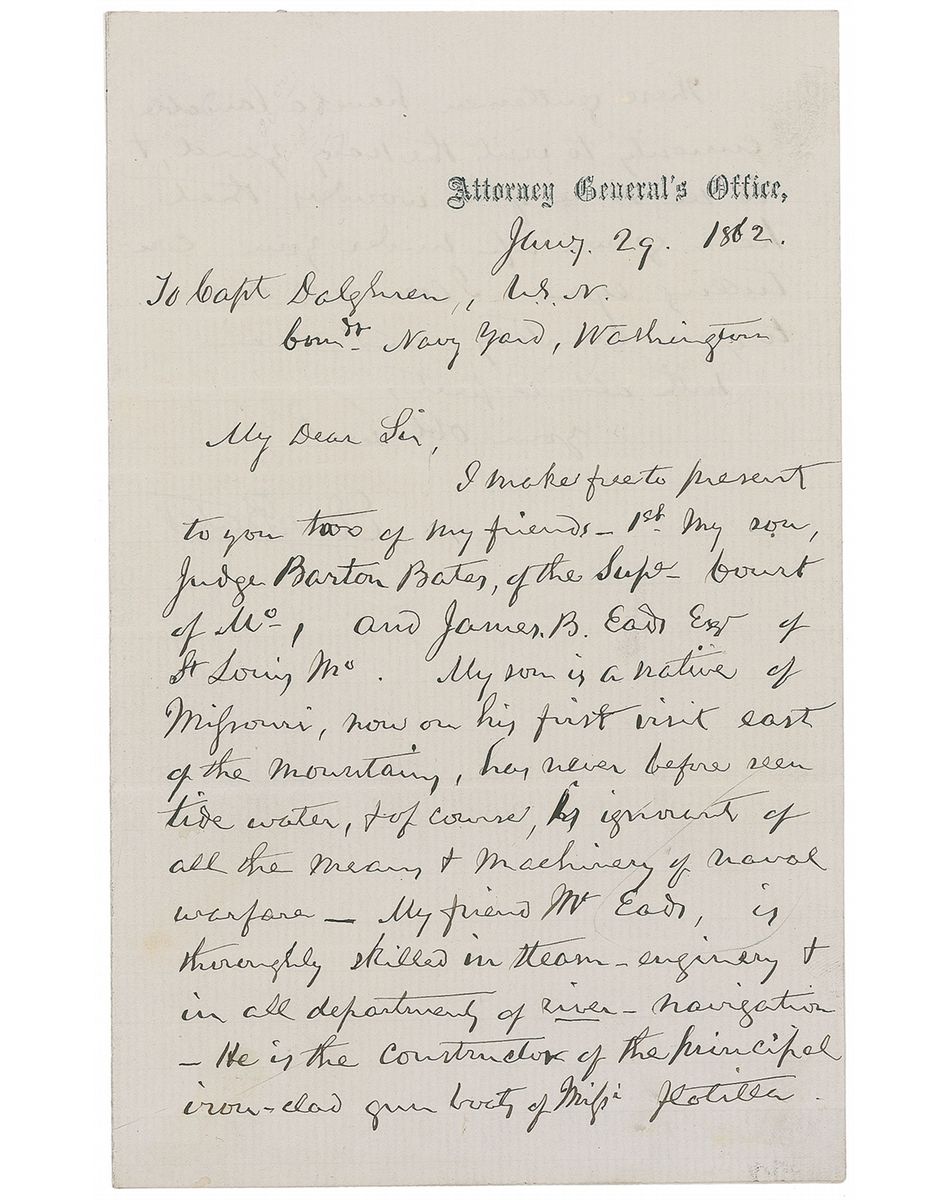 Attorney General's Office,
Jany. 29. 1862.
To Capt Dalghren, U.S.N.
Comdt. Navy Yard, Washington
My Dear Sir,
I make free to present
to you two of my friends – 1st. My son,
Judge Barton Bates, of the Supe. Court
of Mo., and James. B. Eads Esqr of
St Louis Mo. My son is a native of
Missouri, now on his first visit east
of the mountains, has never before seen
tide water, & of course, is ignorant of
all the means & machinery of naval
warfare – My friend Mr Eads, is
thoroughly skilled in steam-enginery &
in all departments of river-navigation
– He is the constructor of the principal
iron-clad gun boats of Missi flotilla.